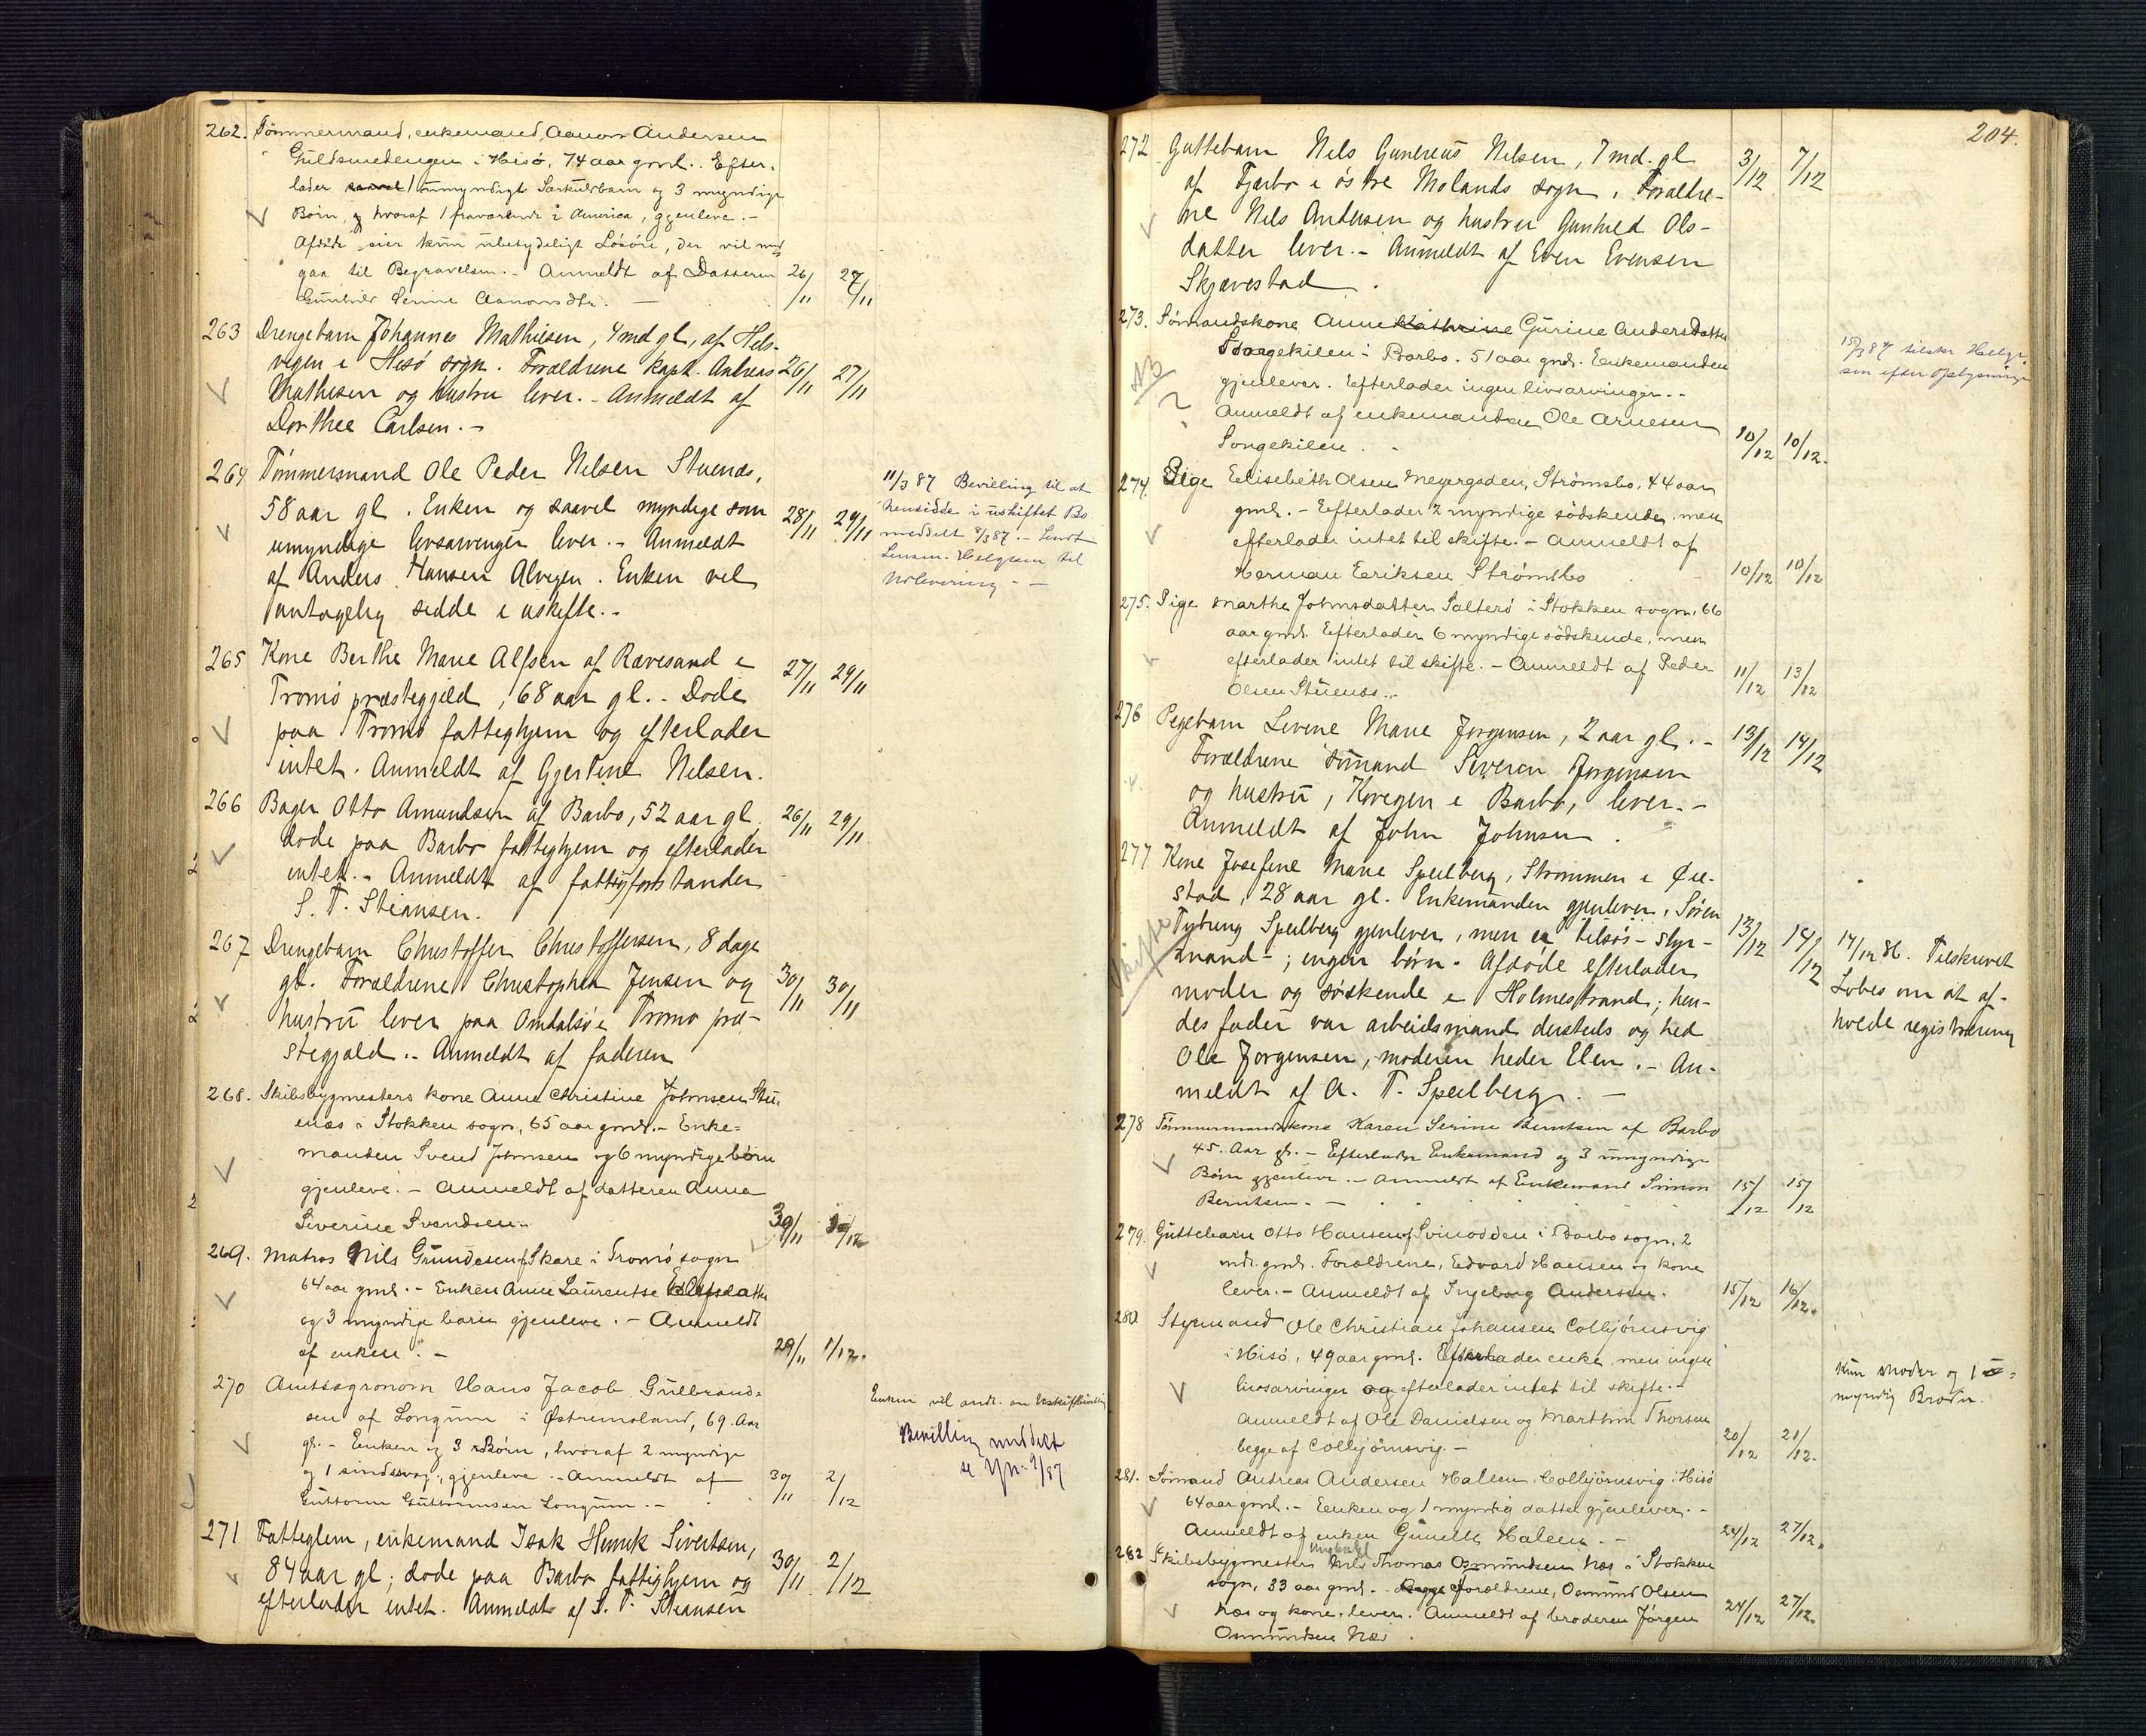 262. Tømmermand, enkemand, Aanon Andersen
Guldsmedengen i Hisø, 74 aar gml. Efter-
lader 1 umyndigt Særkuldbarn og 3 myndige
Børn, hvoraf 1 fraværende i America, gjenleve.-
Afdøde eier kun ubetydeligt Løsøre, der vil med-
gaa til Begravelsen.- Anmeldt af Datteren 26/11 27/11
Gunhild Serine Aanonsdtr.
263 Drengebarn Johannes Mathiesen, 4 md gl, af Hels-
vigen i Hisø sogn. Forældrene kapt. Andreas 26/11 27/11
Mathisen og hustru lever.- Anmeldt af
Dorthee Carlsen.-
264 Tømmermand Ole Peder Nelsen Stuenæs,
58 aar gl. Enken og saavel myndige som 28/11 29/11
umyndige livsarvinger lever.- Anmeldt
af Anders Hansen Alvegen. Enken vil
antagelig sidde i uskifte.-
11/3 87 Bevilling til at
hensidde i uskiftet Bo
meddelt 8/3 87.- Sendt
Lensm. Helgesen til
265 Kone Berthe Marie Alfsen af Rævesand i 27/11 29/11
Tromø præstegjeld, 68 aar gl.- Døde
paa Tromø fattighjem og efterlader
intet. Anmeldt af Gjertine Nelsen.
266 Bager Otto Amundsen af Barbo, 52 aar gl, 26/11 29/11
døde paa Barbo fattighjem og efterlader
intet.- Anmeldt af fattigforstander
S. T. Stiansen.
267 Drengebarn Christoffer Christoffersen, 8 dage
gl. Forældrene Christopher Jensen og 30/11 30/11
hustru lever paa Omdalsø i Tromø præ-
stegjæld.- Anmeldt af faderen
268. Skibsbygmesters kone Anne Christine Johnsen Stu-
enæs i Stokken sogn, 65 aar gml.- Enke-
manden Svend Johnsen og 6 myndige børn
gjenleve.- Anmeldt af datteren Anna
Siverine Svendsen.-
269. Matros Nils Gundesen af Skare i Tromø sogn
64 aar gml.- Enken Anne Laurentse
og 3 myndige børn gjenleve.- Anmeldt
af enken.- 29/11 1/12.
270 Amtsagronom Hans Jacob Gulbrand-
sen af Longum i Østremoland, 69 Aar
gl.- Enken og 3 Børn, hvoraf 2 myndige
og 1 sindssvag, gjenleve.- Anmeldt af 30/11 2/12
Guttorm Guttormsen Longum.-
Enken vil
Bevilling meddelt
271 Fattiglem, enkemand Isak Henrik Sivertsen,
84 aar gl; døde paa Barbo fattighjem og 30/11 2/12
efterlader intet. Anmeldt af S. T. Stiansen
204.
272 Guttebarn Nels Gunerius Nelsen, 7 md. gl 3/12 7/12
af Fjærbo i østre Molands sogn. Forældre-
ne Nels Andersen og hustru Gunhild Ols-
datter lever.- Anmeldt af Even Evensen
Skjævestad.
273. Sømandskone Anne Kathrine Gurine Anders Datter
Songekilen i Barbo. 51 aar gml. Enkemanden
gjenlever. Efterlader ingen livsarvinger.-
NB ?
Anmeldt af enkemanden Ole Arnesen 10/12 10/12.
Songekilen.
15/3 87 tilskr Helge-
sen efter Oplysninger
274. Pige Elisebeth Olsen Meyergaden, Strømsbo, 44 aar
gml.- Efterlader 2 myndige sødskende, men
efterlader intet til skifte.- Anmeldt af
Herman Eriksen Strømsbo 10/12 10/12
275. Pige Marthe Johnsdatter Salterø i Stokken sogn, 66
aar gml. Efterlader 6 myndige sødskende, men
efterlader intet til skifte.- Anmeldt af Peder 11/12 13/12
Olsen Stuenæs.-
276 Pegebarn Levine Marie Jørgensen, 2 aar gl.- 13/12 14/12
Forældrene sømand Severin Jørgensen
og hustru, Kovegen i Barbo, lever.-
Anmeldt af John Johnsen.
277 Kone Josefine Marie Speilberg, Strømmen i Øie-
stad, 28 aar gl. Enkemanden gjenlever, Søren
Tybring Speilberg gjenlever, men er tilsøs - styr- 13/12 14/12
mand-; ingen børn. Afdøde efterlader
moder og søskende i Holmestrand; hen-
des fader var arbeidsmand dersteds og hed
Ole Jørgensen, moderen heder Elen.- An-
meldt af A. T. Speilberg.-
Skifte
14/12 86. Tilskrevet
Lobes om at af-
holde registrering
278 Tømmermandskone Karen Serine Berntsen af Barbo
45 Aar gl.- Efterlader Enkemand og 3 umyndige
Børn gjenleve.- Anmeldt af Enkemand Simon 15/12 15/12
Berntsen.-
279. Guttebarn Otto Hansen af Svinodden i Barbo sogn, 2
mdr. gml. Forældrene, Edvard Hansen og kone
lever.- Anmeldt af Ingeborg Andersen. 15/12 16/12.
280 Styrmand Ole Christian Johansen Colbjørnsvig
i Hisø, 49 aar gml. Efterlader enke men ingen
livsarvinger og efterlader intet til skifte.-
Anmeldt af Ole Danielsen og Marthin Thorsen
begge af Colbjørnsvig.- 20/12 21/12.
Kun moder og 1 u-
myndig Broder.
281. Sømand Andreas Andersen Haleen, Colbjørnsvig i Hisø
64 aar gml.- Enken og 1 myndig datter gjenlever.-
Anmeldt af enken Gunelle Haleen.- 24/12 27/12.
282 Skibsbygmester Ungkarl Nils Thomas Osmundsen Næs i Stokken
sogn, 33 aar gml.- Begge Forældrene, Osmund Olsen
Næs og kone, lever. Anmeldt af broderen Jørgen 24/12 27/12.
Osmundsen Næs.